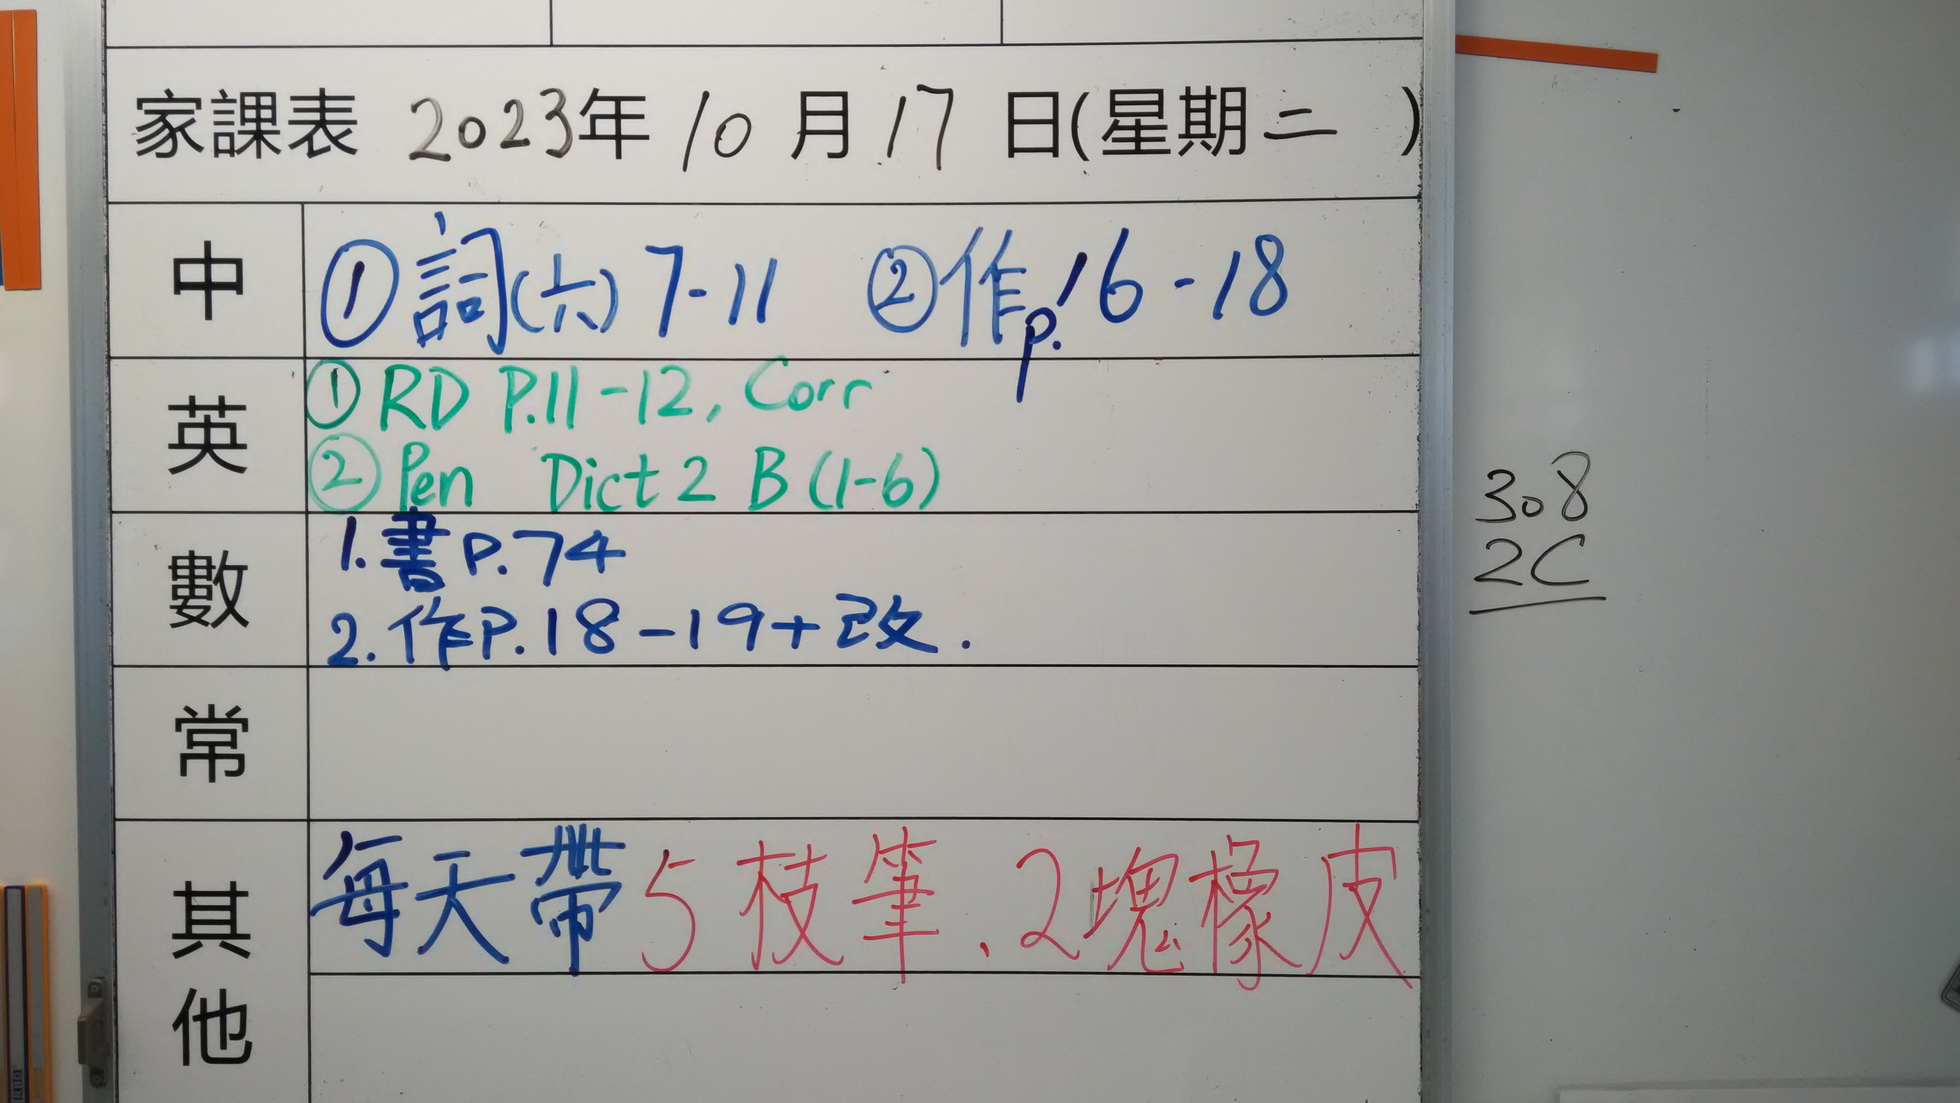 家課表 2023年 10 月 17 日(星期二 )
中
① 詞(六) 7-11 ② 作p.16-18
英
① RD P.11-12, Corr
② Pen Dict 2 B (1-6)
數
1. 書P.74
2. 作P.18-19+改.
常
其他
每天帶5枝筆、2塊橡皮
308
2C